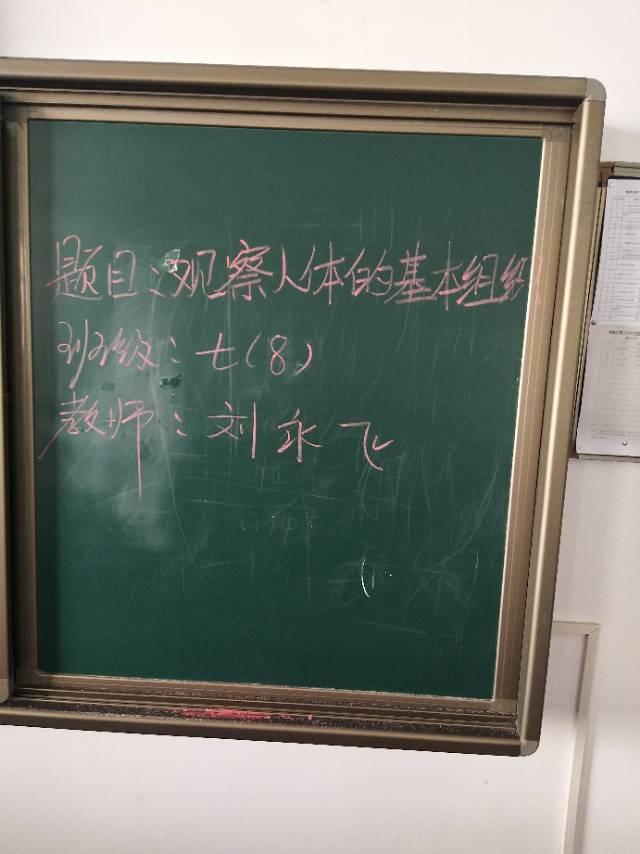 题目:观察人体的基本组织
班级:七(8)
教师:刘永飞